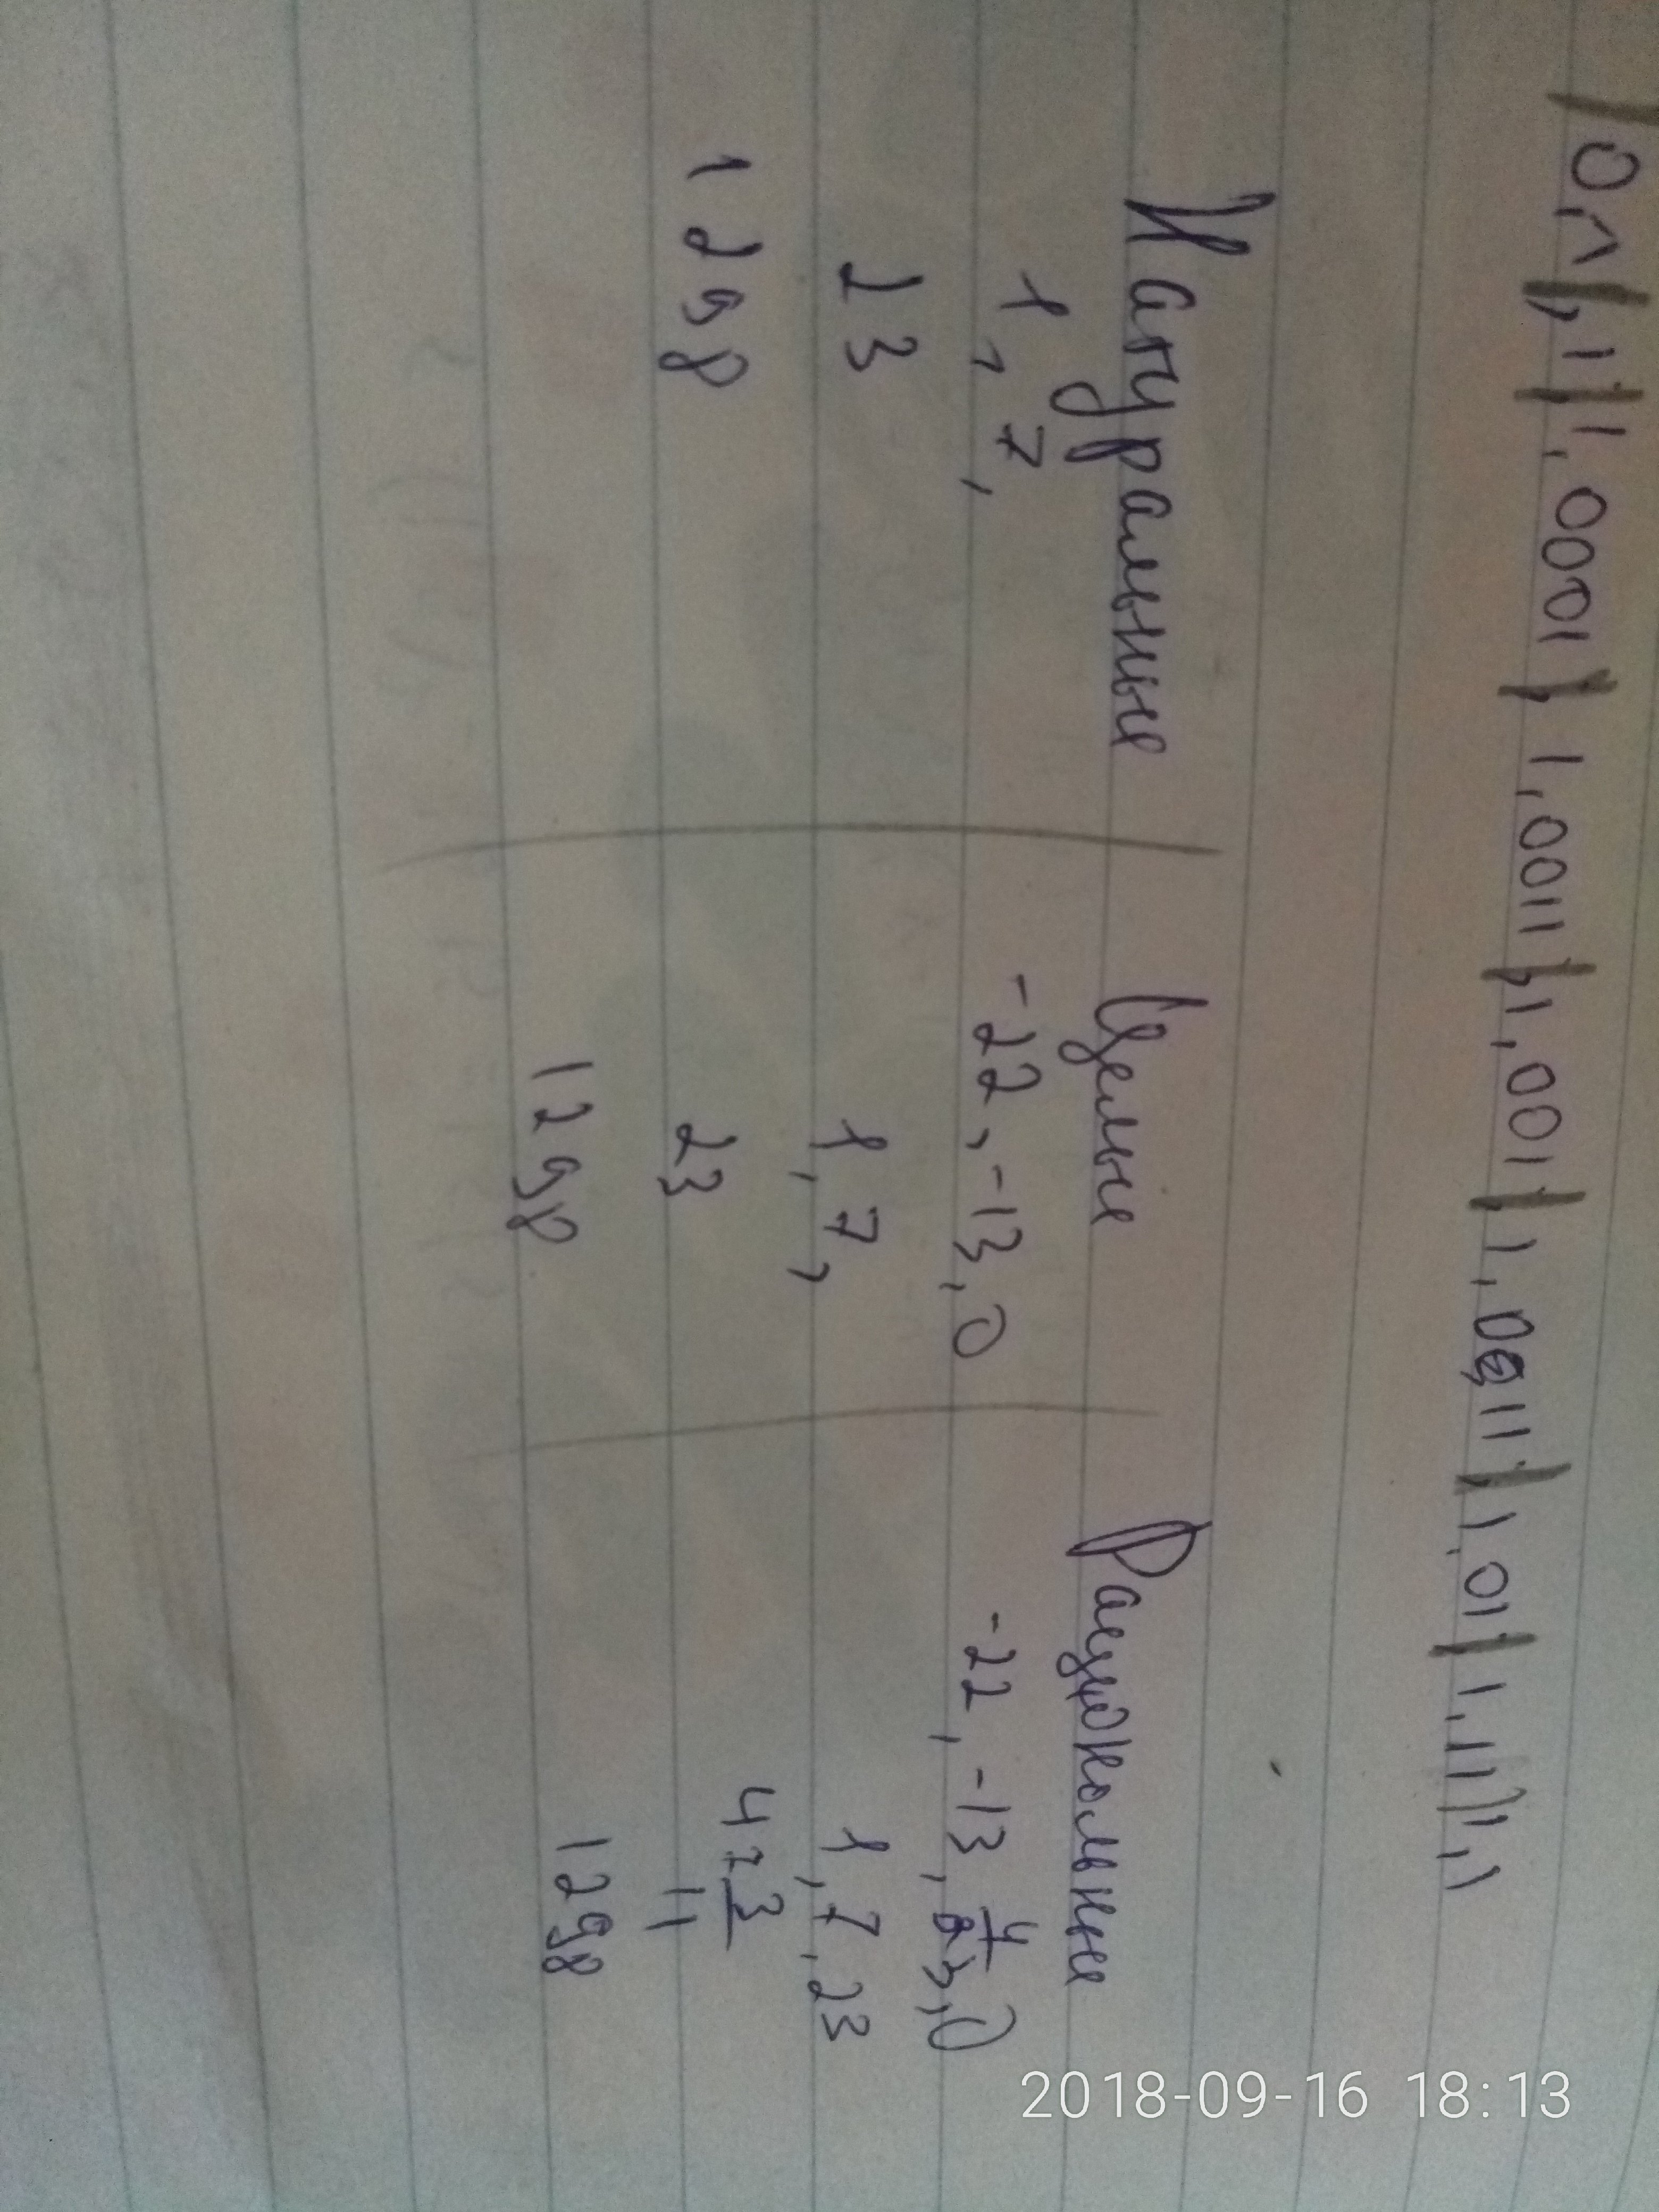 0,1|, 1|1,0001|, 1,0011|, 1,001|, 1,0011|, 1,01|, 1,11|1,1
Натуральные | Целые | Рациональные
1, 7, | -22, -13, 0 | -22, -13, 4/23, 0
23 | 1, 7, | 1, 7, 23
1298 | 23 | 42 3/11
1298 | 1298
2018-09-16 18:13